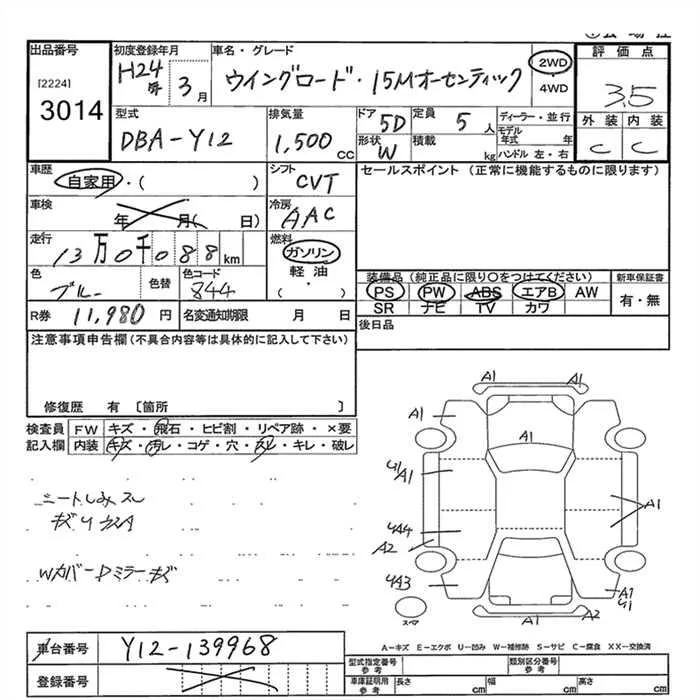 出品番号
[2224]
3014
初度登録年月
H24年 3月
車名・グレード
ウイングロード・15Mオーセンティック
2WD
4WD
評価点
3.5
外装 内装
C C
型式
DBA-Y12
排気量
1,500 CC
ドア 5D
形状 W
定員 5人
積載 kg
ディーラー・並行
モデル年式 年
ハンドル 左・右
車歴
自家用・( )
シフト
CVT
セールスポイント(正常に機能するものに限ります)
車検
年 月( 日)
冷房
AAC
走行
13万0千088km
燃料
ガソリン
軽油
・( )
色
ブルー
色替
色コード
844
装備品(純正品に限り〇をつけてください)
PS PW ABS エアB AW
SR ナビ TV カワ
新車保証書
有・無
R券 11,980 円
名変通知期限 月 日
後日品
注意事項申告欄(不具合内容等は具体的に記入して下さい)
修復歴 有 〔箇所 〕
検査員記入欄
FW キズ・飛石・ヒビ割・リペア跡・×要
内装 キズ・汚レ・コゲ・穴・スレ・キレ・破レ
シートしみスレ
Wカバー Dミラーキズ
A1 A1
A1 A1
A1
U1
A1
A1
U44
A2
U43
A1
U1
A1 A2
スペア
A-キズ E-エクボ U-凹み W-補修跡 S-サビ C-腐食 XX-交換済
車台番号 Y12-139968
登録番号
型式指定番号 参考
類別区分番号 参考
車庫証明用 参考
長さ cm 幅 cm 高さ cm